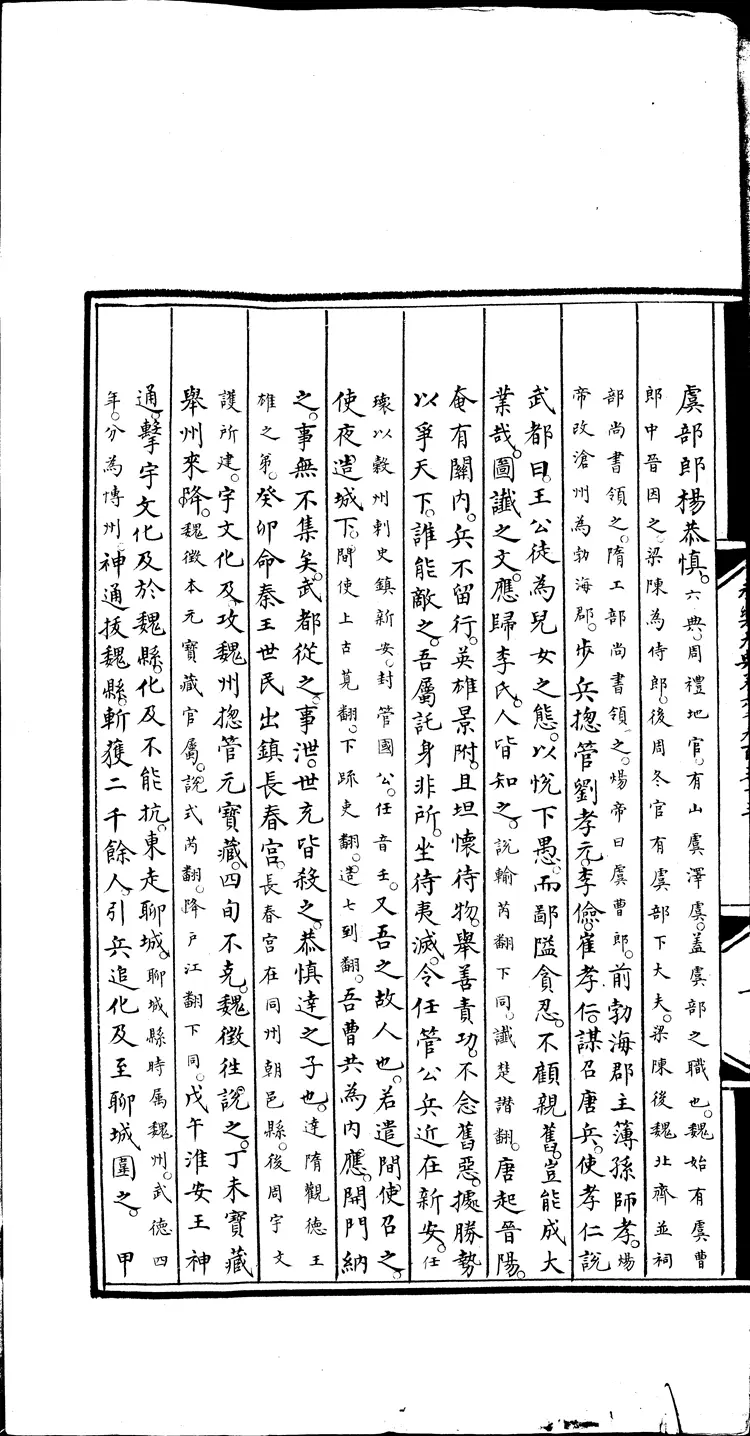 虞部郎楊恭慎。六典。周禮地官。有山虞澤虞。蓋虞部之職也。魏始有虞曹
郎中晉因之。梁陳為侍郎。後周冬官有虞部下大夫。梁陳後魏北齊並祠
部尚書領之。隋工部尚書領之。煬帝曰虞曹郎。前勃海郡主薄孫師孝。煬
帝改滄州為勃海郡。步兵揔管劉孝元。李儉。崔孝仁。謀召唐兵。使孝仁說
武都曰。王公徒為兒女之態。以悅下愚。而鄙隘貪忍。不顧親舊。豈能成大
業哉。圖讖之文。應歸李氏。人皆知之。說輸芮翻下同。讖楚譖翻。唐起晉陽。
奄有關內。兵不留行。英雄景附。且坦懷待物。舉善責功。不念舊惡。據勝勢
以爭天下。誰能敵之。吾屬託身非所。坐待夷滅。令任管公兵近在新安。任
瓌以穀州刺史鎮新安。封管國公。任音壬。又吾之故人也。若遣間使召之。
使夜造城下。間使上古莧翻。下疏吏翻。造七到翻。吾曹共為內應。開門納
之。事無不集矣。武都從之。事泄。世充皆殺之。恭慎達之子也。達隋觀德王
雄之弟。癸卯命秦王世民出鎮長春宮。長春宮在同州朝邑縣。後周宇文
護所建。宇文化及攻魏州揔管元寶藏。四旬不克。魏徵往說之。丁未寶藏
舉州來降。魏徵本元寶藏官屬。說式芮翻。降戶江翻下同。戊午淮安王神
通。擊宇文化及於魏縣。化及不能抗。東走聊城。聊城縣時屬魏州。武德四
年。分為博州。神通拔魏縣。斬獲二千餘人。引兵追化及至聊城圍之。甲